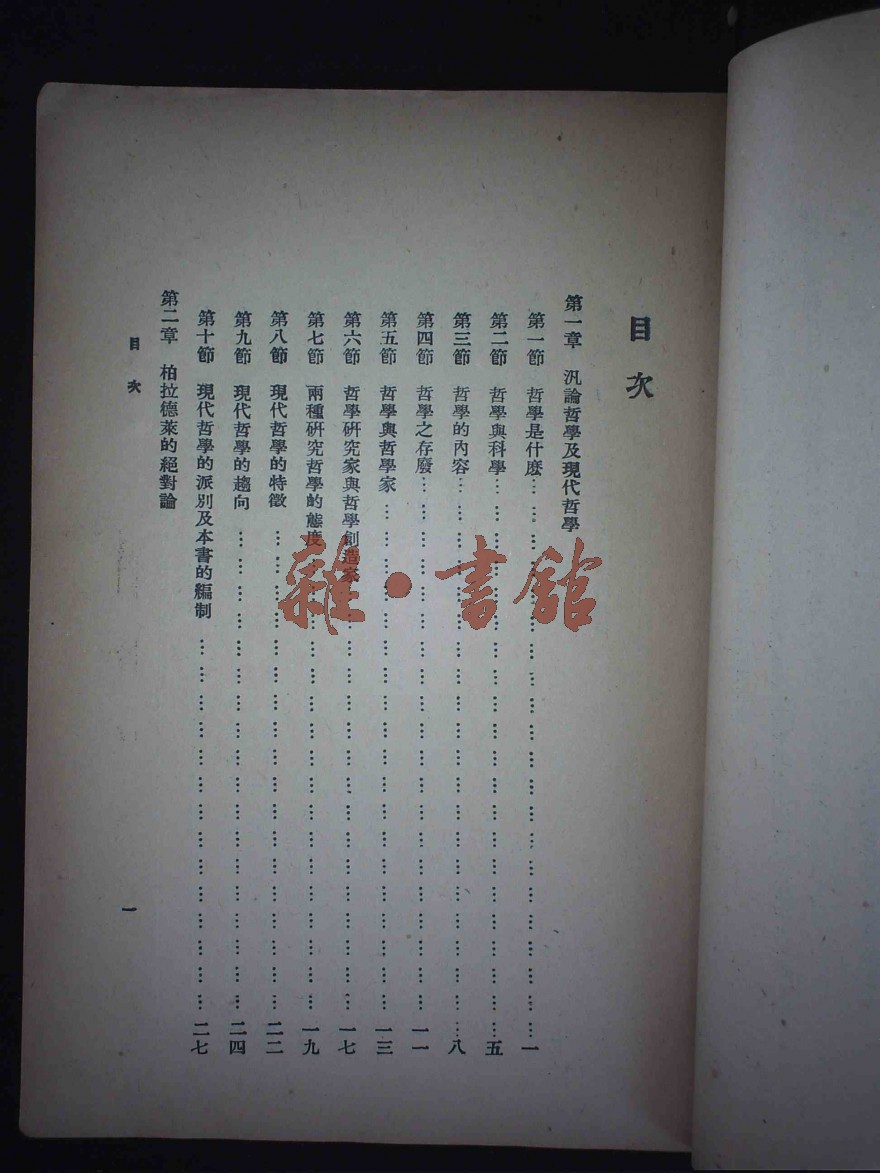 目次
第一章　汎論哲學及現代哲學
第一節　哲學是什麽…………………………一
第二節　哲學與科學…………………………五
第三節　哲學的內容…………………………八
第四節　哲學之存廢…………………………一一
第五節　哲學與哲學家…………………………一三
第六節　哲學研究家與哲學創造家…………………………一七
第七節　兩種研究哲學的態度…………………………一九
第八節　現代哲學的特徵…………………………二二
第九節　現代哲學的趨向…………………………二四
第十節　現代哲學的派別及本書的編制…………………………二七
第二章　柏拉德萊的絕對論
目次
一
雜·書館